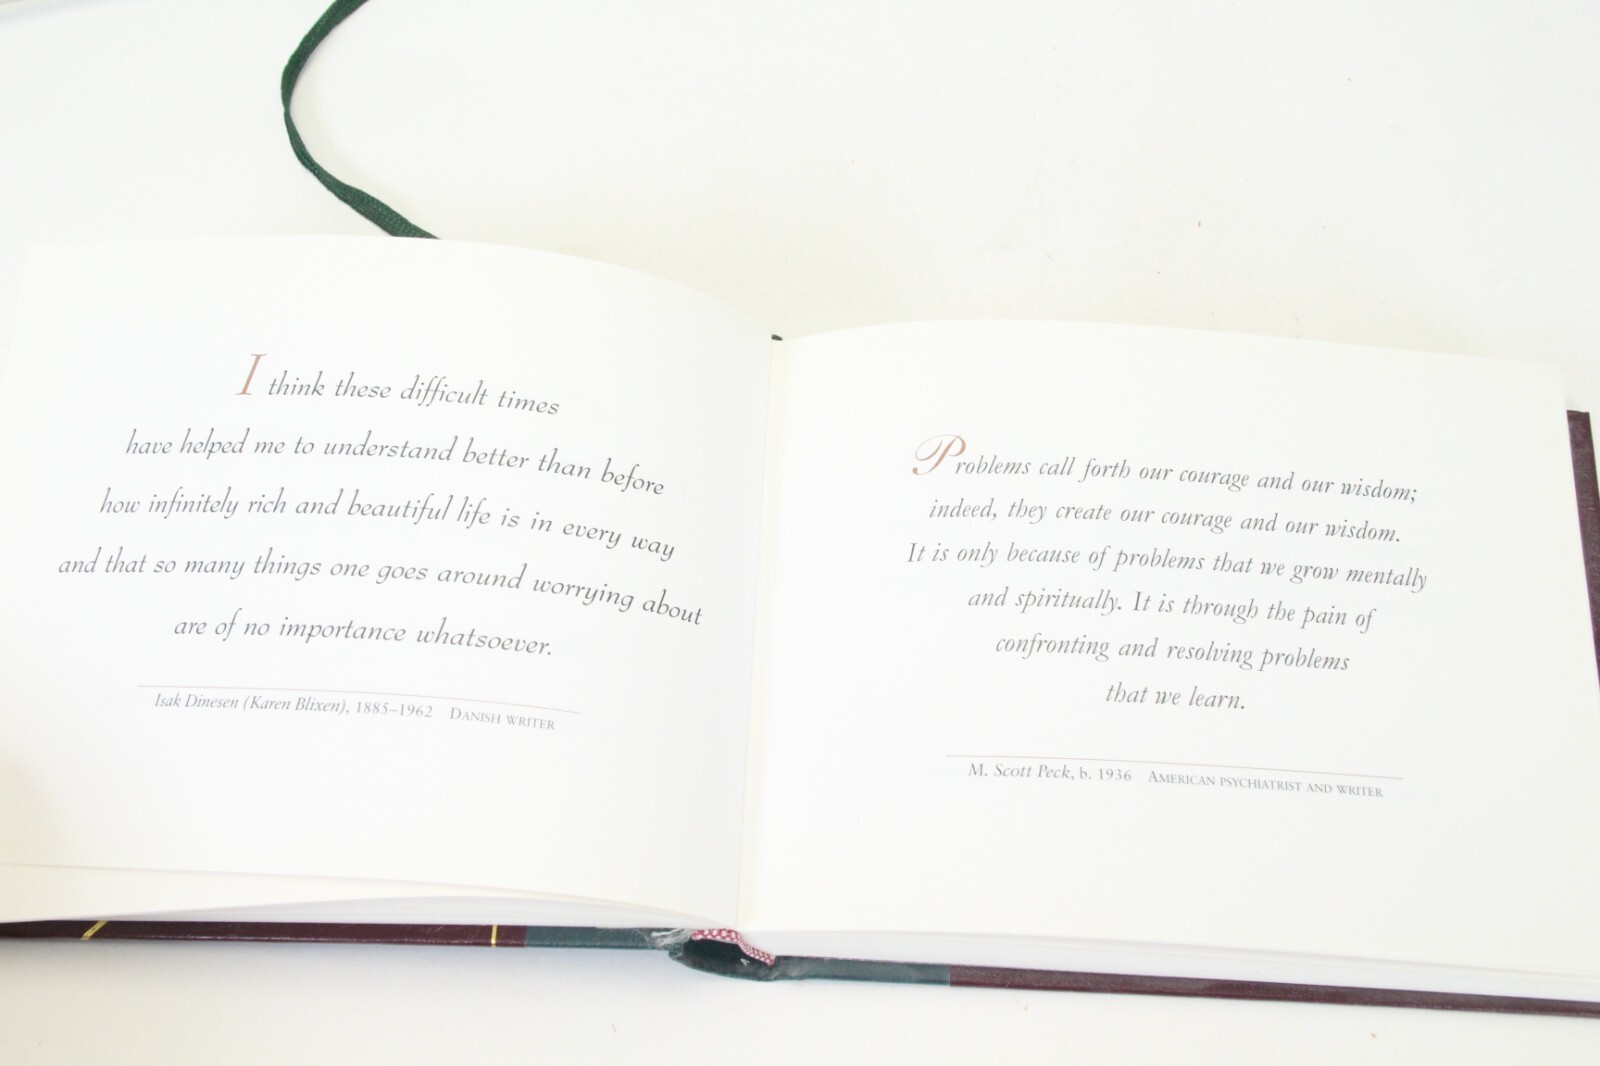 I think these difficult times
have helped me to understand better than before
how infinitely rich and beautiful life is in every way
and that so many things one goes around worrying about
are of no importance whatsoever.
Isak Dinesen (Karen Blixen), 1885–1962 DANISH WRITER
Problems call forth our courage and our wisdom;
indeed, they create our courage and our wisdom.
It is only because of problems that we grow mentally
and spiritually. It is through the pain of
confronting and resolving problems
that we learn.
M. Scott Peck, b. 1936 AMERICAN PSYCHIATRIST AND WRITER